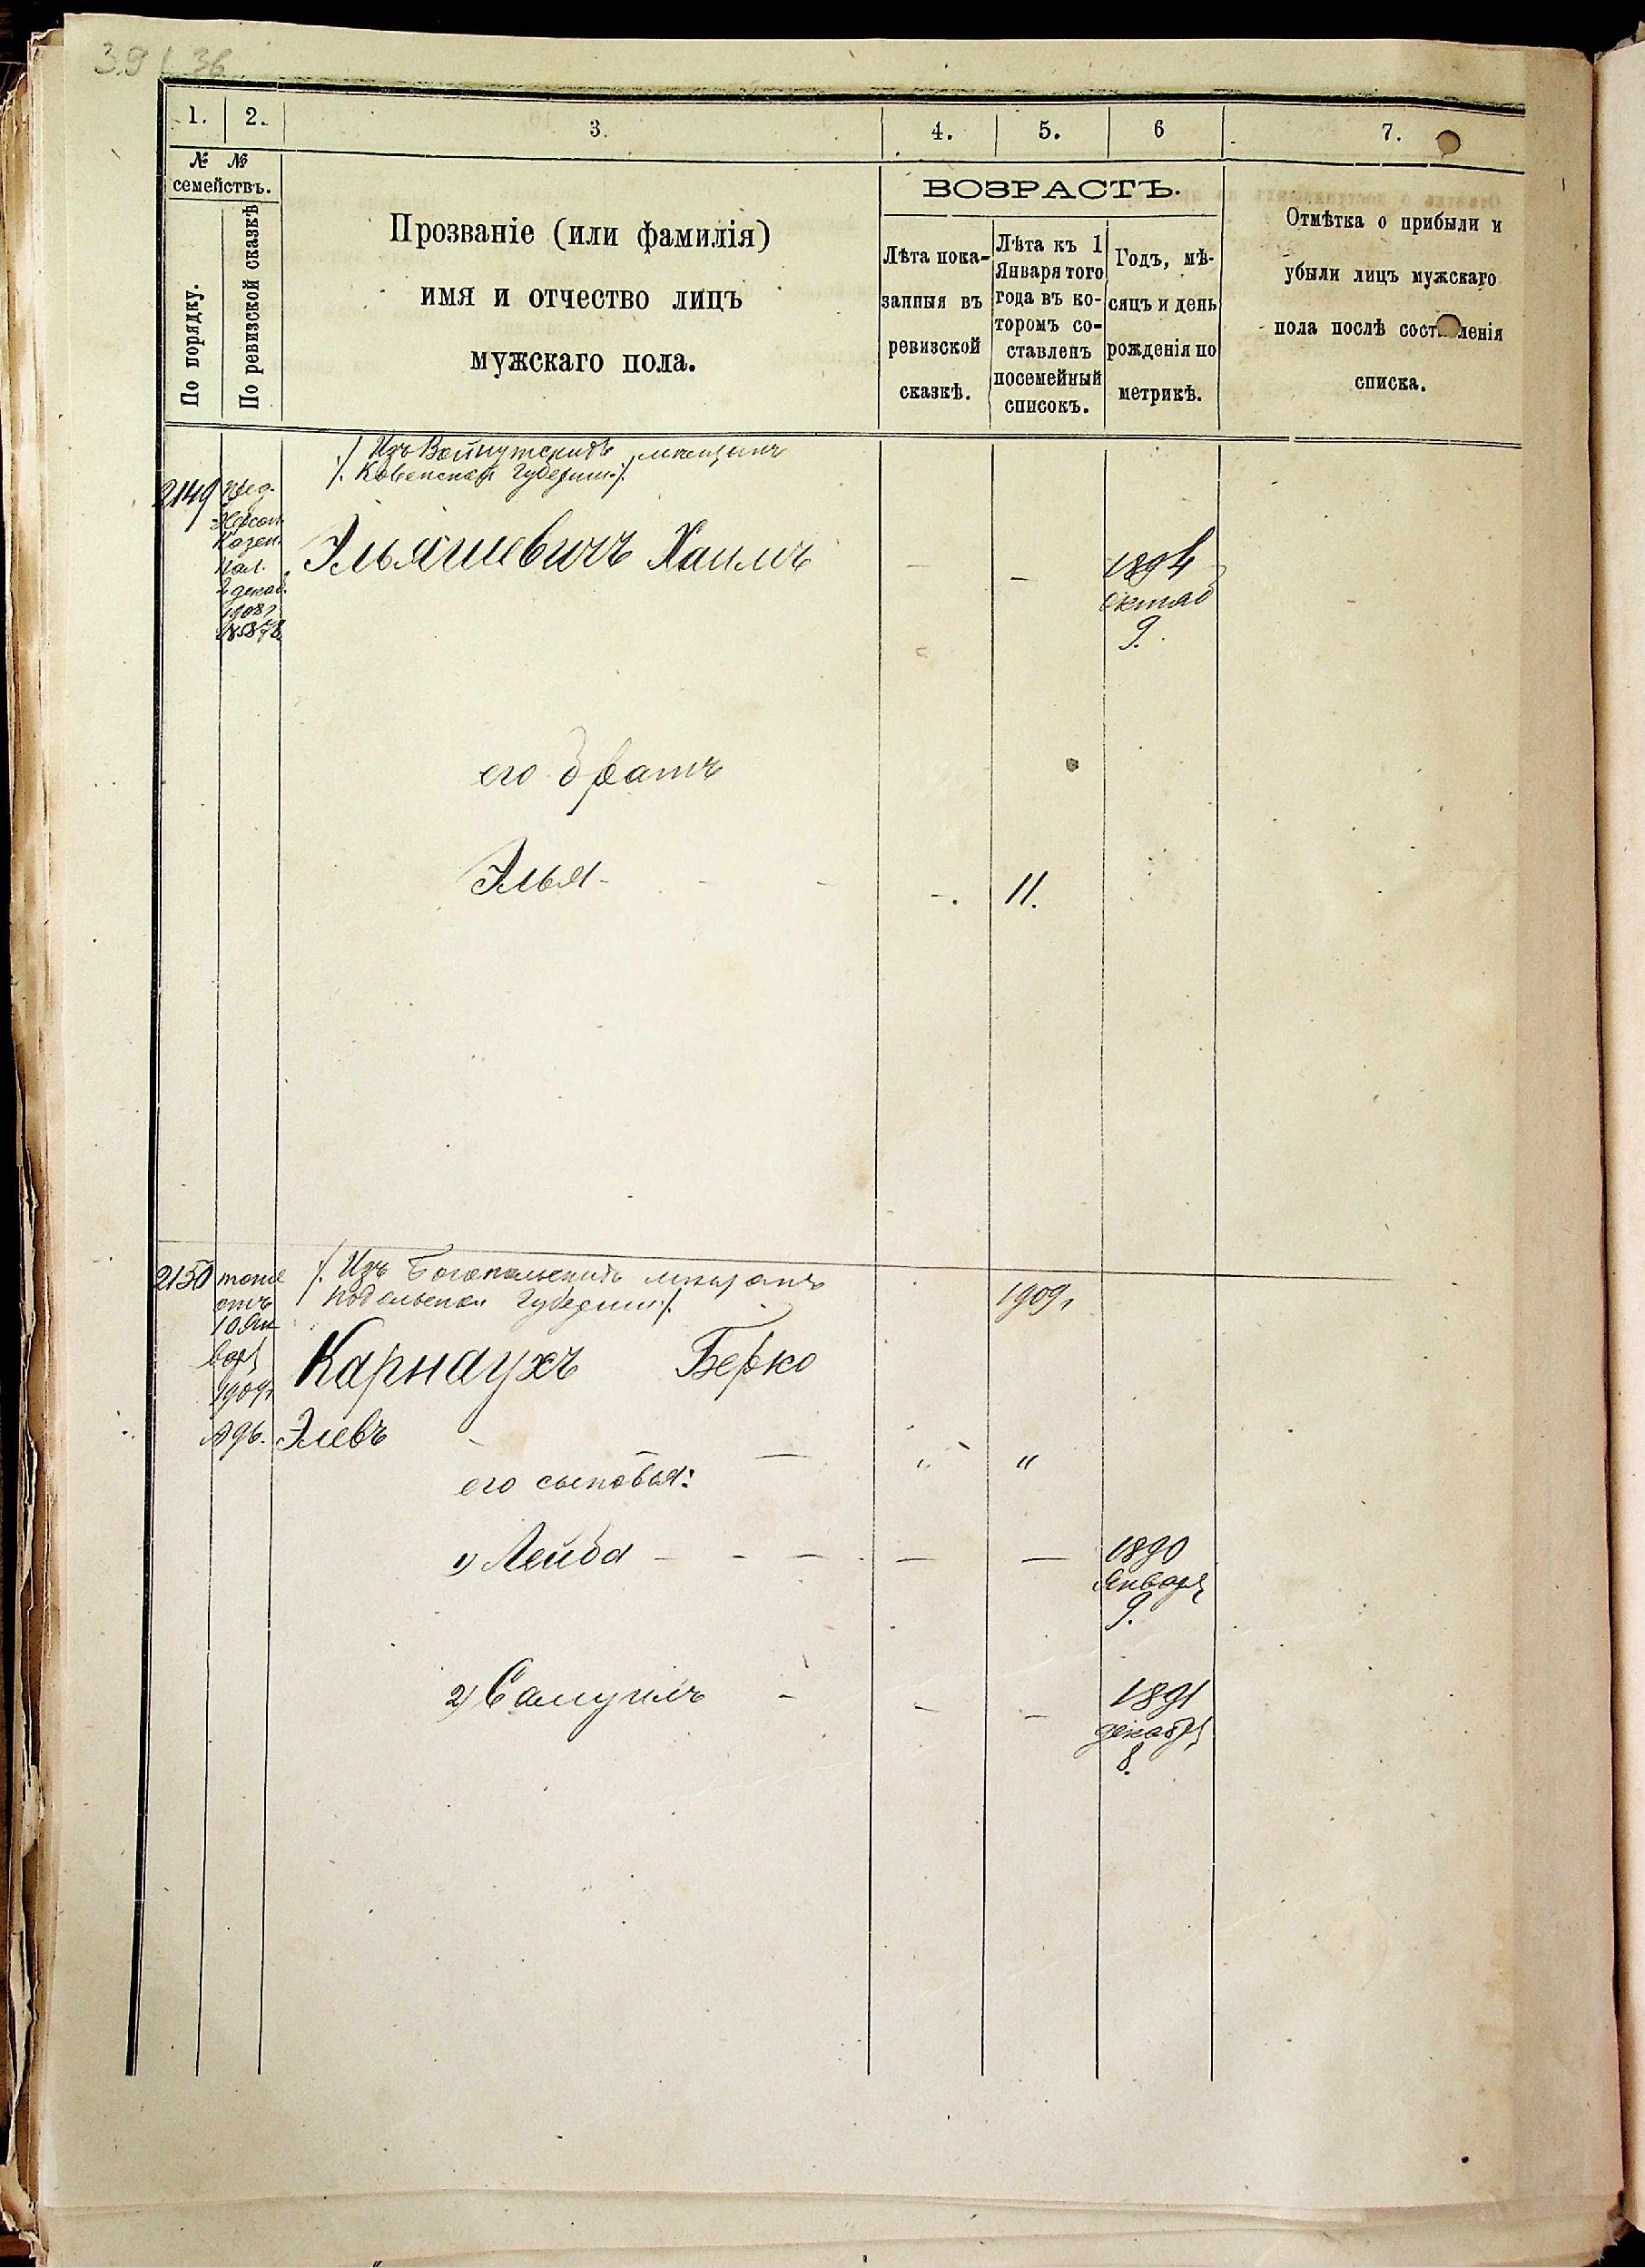 39 36
1. 2. 3. 4. 5. 6 7.
№ №
семействъ.
По порядку.
По ревизской сказкѣ
Прозваніе (или фамилія)
имя и отчество лицъ
мужскаго пола.
ВОЗРАСТЪ.
Лѣта пока-
занныя въ
ревизской
сказкѣ.
Лѣта къ 1
Января того
года въ ко-
торомъ со-
ставленъ
посемейный
списокъ.
Годъ, мѣ-
сяцъ и день
рожденія по
метрикѣ.
Отмѣтка о прибыли и
убыли лицъ мужскаго
пола послѣ составленія
списка.
/. Изъ Вайнутскихъ мѣщанъ
Ковенской Губерніи ./
2149
Пред.
Херсон.
Казен.
Пал.
2 декаб.
1908 г
Эльяшевичъ Хаимъ
1894
октяб
9.
его братъ
Элья
11.
2150
тоже
отъ
10 Ян
варя
1909 г
/. Изъ Богопольскихъ мѣщанъ
Подольской Губерніи ./
1909 г
Карнаухъ Берко
Элевъ " "
его сыновья:
1) Лейба
1890
Января
9.
2) Самуилъ
1891
декабря
8.